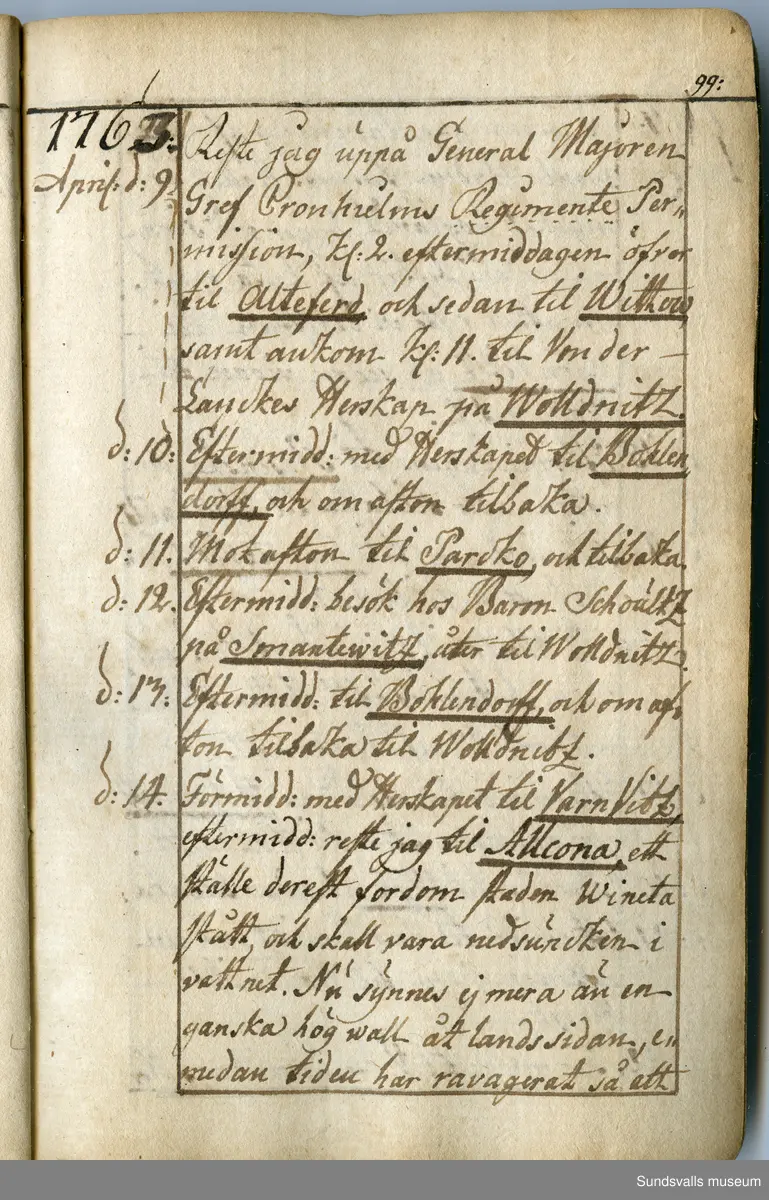 99:
1763:
April: d: 9. Reste jag uppå General Majoren
Gref Cronhielms Regimente Per„
mission, kl: 2. eftermiddagen öfver
til Alteferd, och sedan til Wittow,
samt ankom kl: 11. til Von der
Lanckes Herskap på Wolldnitz.
d: 10: Eftermidd: med Herskapet til Bohlen
dorff, och om afton tilbaka.
d: 11. Mot afton til Parcko, och tilbaka.
d: 12. Eftermidd: besök hos Baron Schoultz
på Smantewitz, åter til Wolldnitz.
d: 13: Eftermidd: til Bohlendorff, och om af„
ton tilbaka til Wolldnitz.
d: 14. Förmidd: med Herskapet til VarnVitz,
eftermidd: reste jag til Allcona, ett
ställe derest fordom staden Wineta
stått, och skall vara nedsuncken i
vattnet. Nu synnes ej mera än en
ganska hög wall åt landssidan, e„
medan tiden har ravagerat så ett
Sundsvalls museum